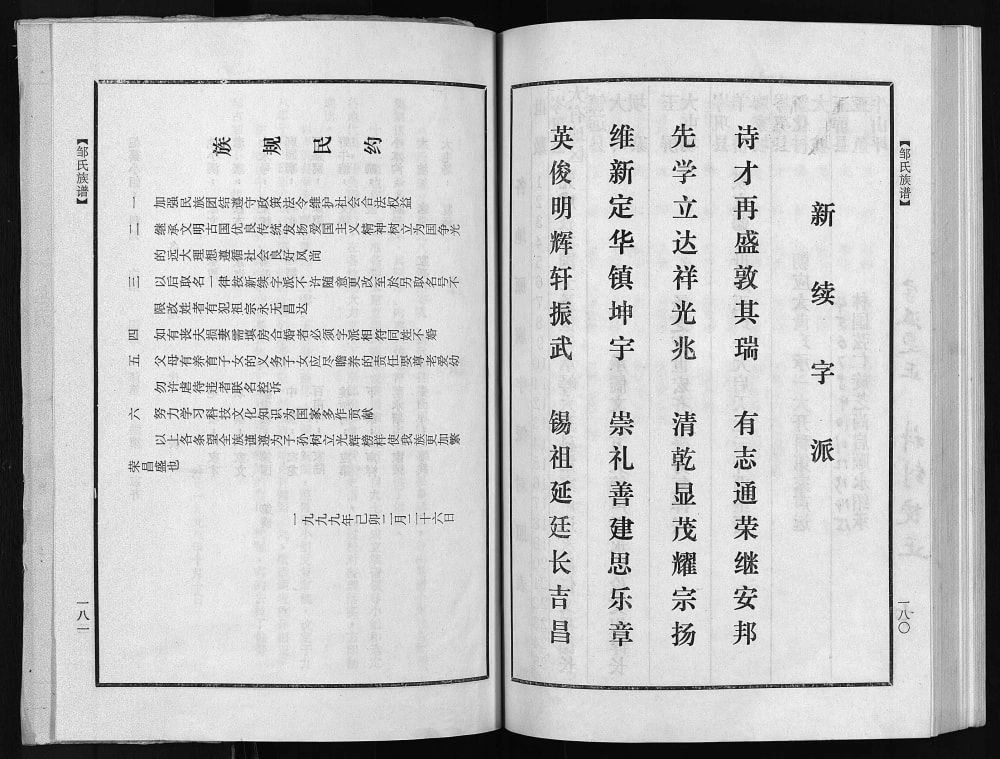 【邹氏族谱】
新续字派
诗才再盛敦其瑞 有志通荣继安邦
先学立达祥光兆 清乾显茂耀宗扬
维新定华镇坤宇 崇礼善建思乐章
英俊明辉轩振武 锡祖延廷长吉昌
一八〇
【邹氏族谱】
族规民约
一 加强民族团结遵守政策法令维护社会合法权益
二 继承文明古国优良传统发扬爱国主义精神树立为国争光
的远大理想遵循社会良好风尚
三 以后取名一律按新续字派不许随意更改至於另取名号不
限改姓者有犯祖宗永无昌达
四 如有丧夫损妻需填房合婚者必须字派相符同姓不婚
五 父母有养育子女的义务子女应尽瞻养的责任要尊老爱幼
勿许虐待违者联名控诉
六 努力学习科技文化知识为国家多作贡献
以上各条望全族谨遵为子孙树立光辉榜样使我族更加繁
荣昌盛也
一九九九年己卯二月二十六日
一八一